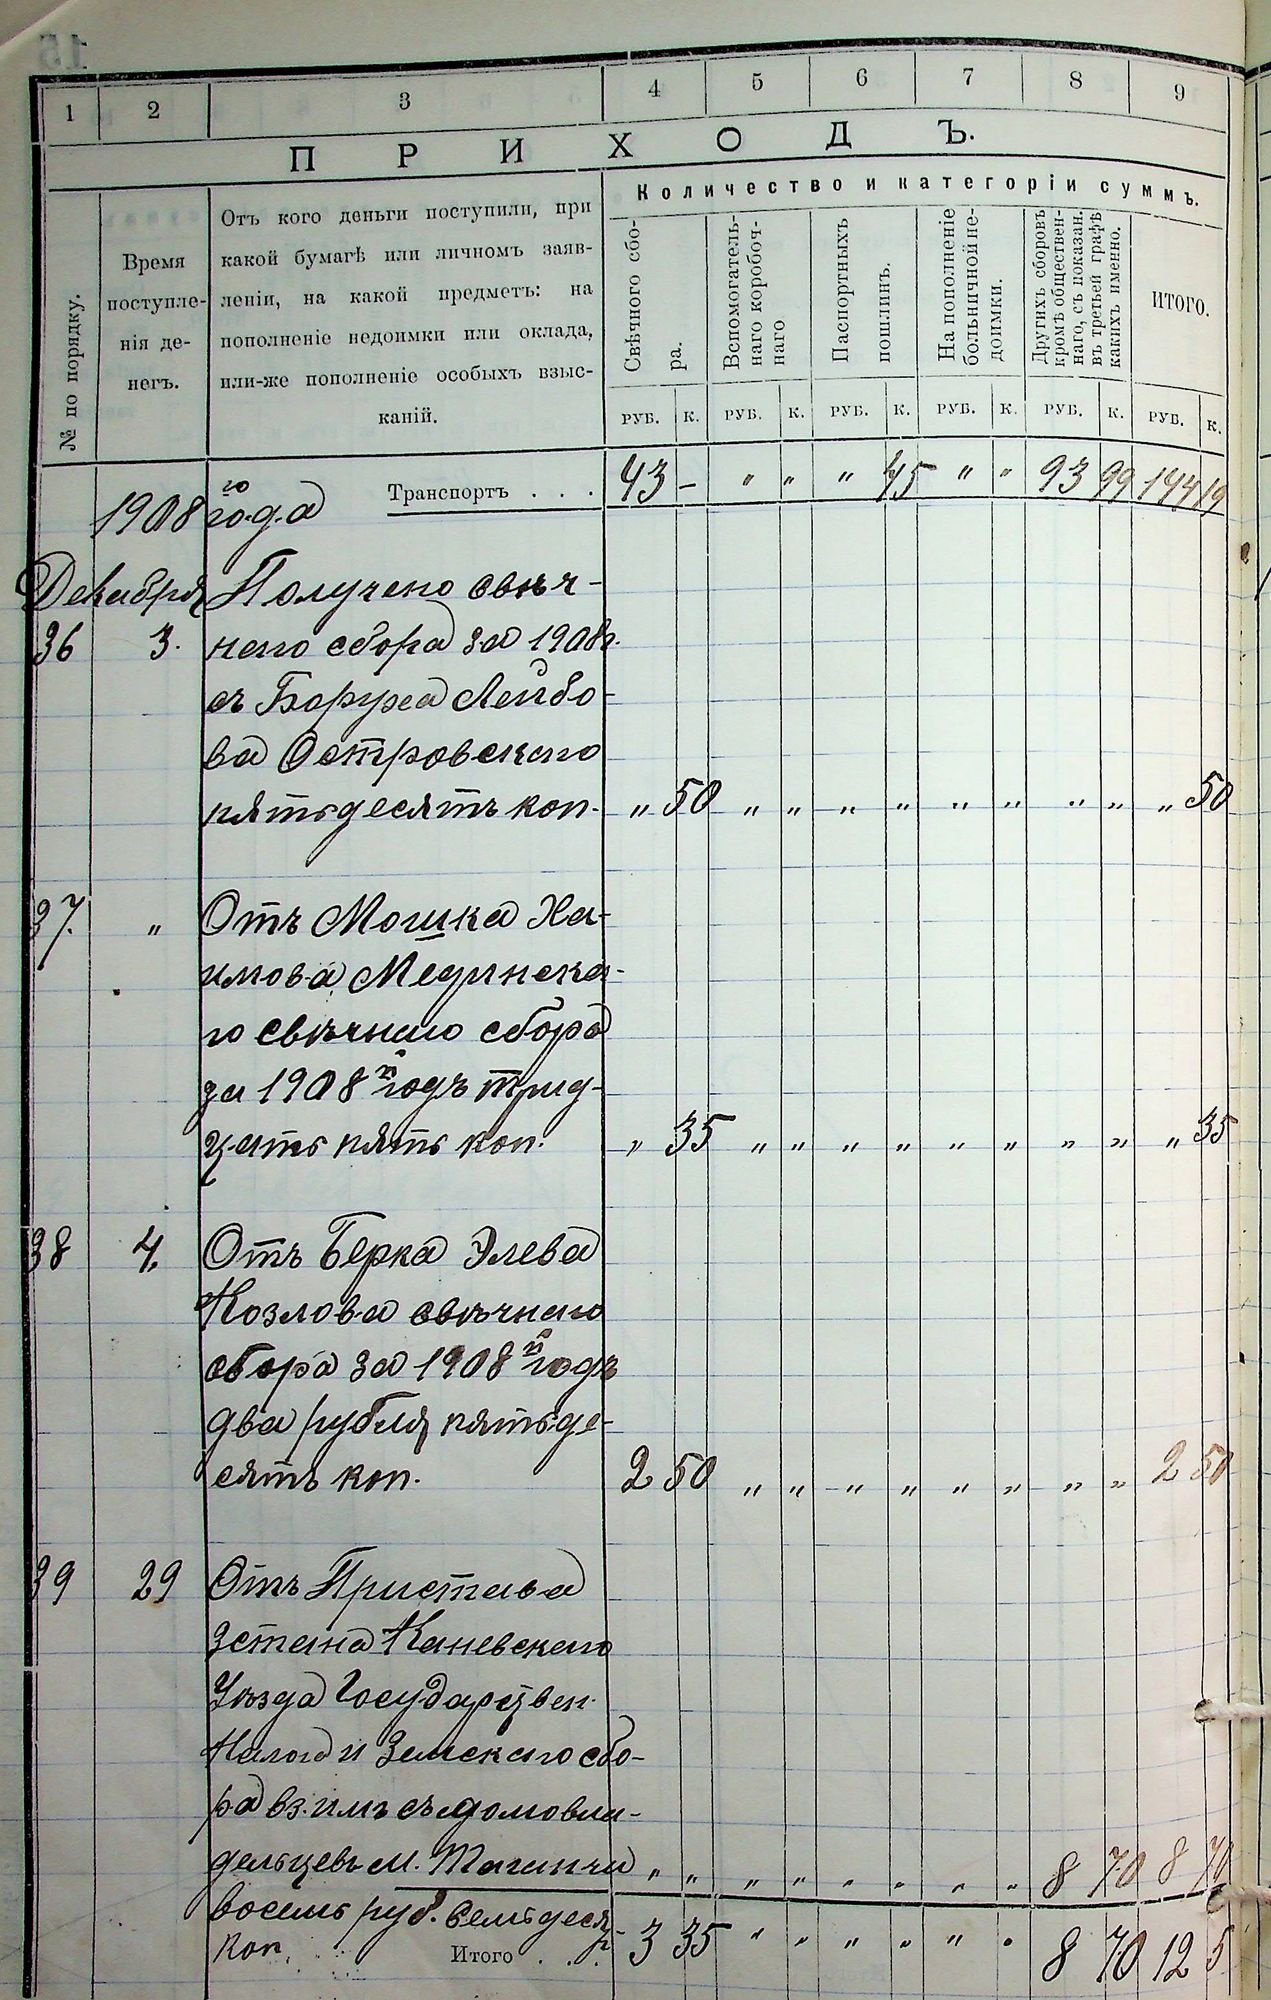 15
1 2 3 4 5 6 7 8 9
П Р И Х О Д Ъ.
Количество и категоріи суммъ.
№ по порядку.
Время
поступле-
нія де-
негъ.
Отъ кого деньги поступили, при
какой бумагѣ или личномъ заяв-
леніи, на какой предметъ: на
пополненіе недоимки или оклада,
или-же пополненіе особыхъ взыс-
каній.
Свѣчного сбо-
ра.
Вспомогатель-
наго коробоч-
наго
Паспортныхъ
пошлинъ.
На пополненіе
больничной не-
доимки.
Другихъ сборовъ
кромѣ обществен-
наго, съ показан.
въ третьей графѣ
какихъ именно.
ИТОГО.
РУБ. К. РУБ. К. РУБ. К. РУБ. К. РУБ. К. РУБ. К.
Транспортъ . . . 43 – „ „ „ 45 „ „ 93 99 144 19
1908 го года
Декабря Получено свѣч-
36 3. наго сбора за 1908 г.
съ Боруха Лейбо-
ва Островскаго
пятьдесятъ коп. „ 50 „ „ „ „ „ „ „ „ „ 50
37. „ Отъ Мошка Ха-
имова Мединска-
го свѣчнаго сбора
за 1908 й годъ трид-
цать пять коп. „ 35 „ „ „ „ „ „ „ „ „ 35
38 4. Отъ Берка Элева
Козлова свѣчнаго
сбора за 1908 й годъ
два рубля пятьде-
сятъ коп. 2 50 „ „ „ „ „ „ „ „ 2 50
39 29 Отъ Пристава
3 стана Каневскаго
Уѣзда Государствен.
Налога и Земскаго сбо-
ра вз.имъ съ домовла-
дельцевъ м. Таганчи „ „ „ „ „ „ „ „ 8 70 8 70
восемь руб. семьдеся-
коп. Итого . . . 3 35 „ „ „ „ „ „ 8 70 12 5